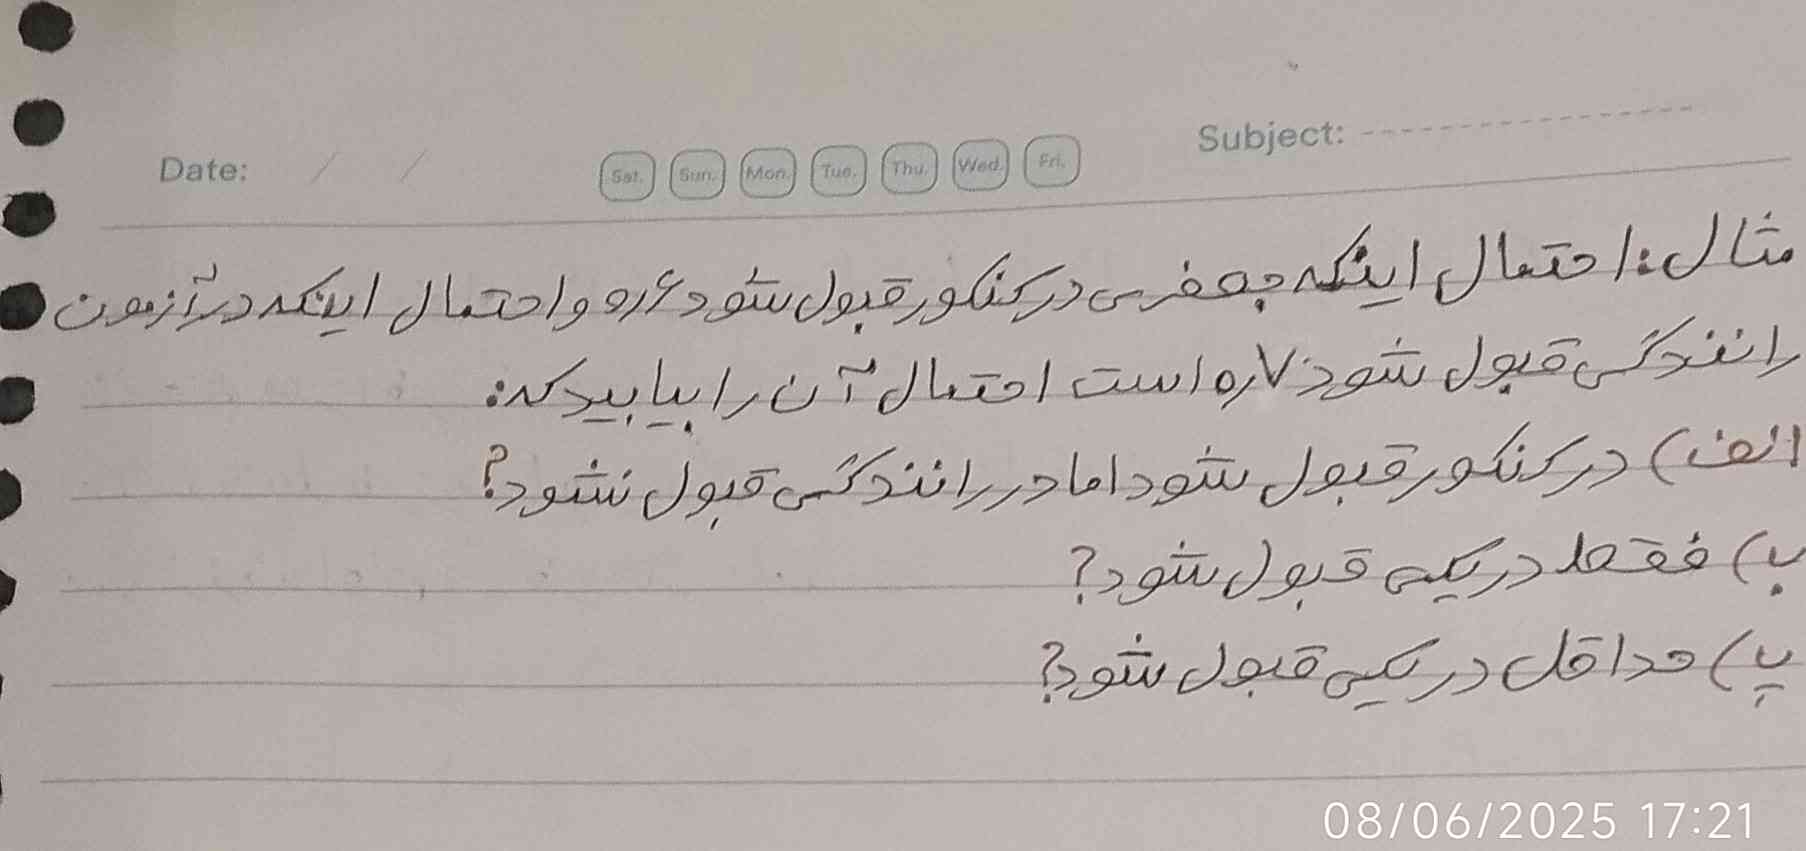 Date: / / Sat. Sun. Mon. Tue. Thu. Wed. Fri. Subject:
مثال: احتمال اینکه جعفری در کنکور قبول شود ۰٫۶ و احتمال اینکه در آزمون
رانندگی قبول شود ۰٫۷ است احتمال آن را بیابید که:
الف) در کنکور قبول شود اما در رانندگی قبول نشود؟
ب) فقط در یکی قبول شود؟
پ) حداقل در یکی قبول شود؟
08/06/2025 17:21